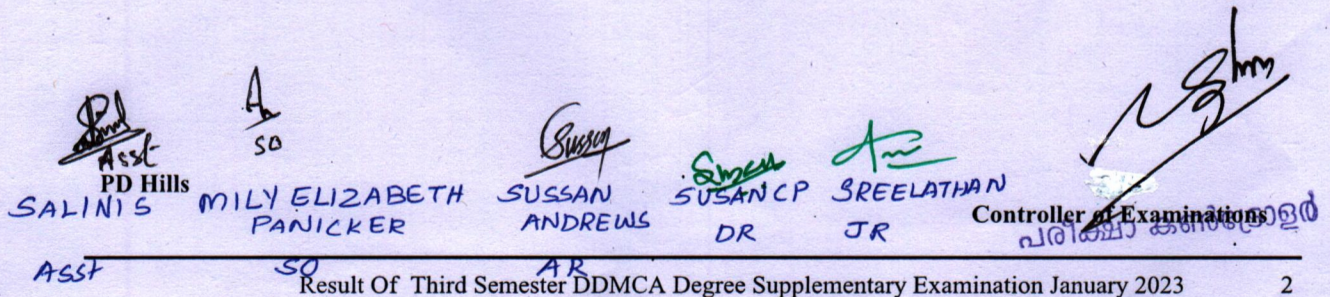 Asst
SO
PD Hills
SALINI S MILY ELIZABETH PANICKER SUSSAN ANDREWS SUSAN CP SREELATHAN
DR JR
Controller of Examinations
പരീക്ഷാ കൺട്രോളർ
Asst SO AR
Result Of Third Semester DDMCA Degree Supplementary Examination January 2023 2